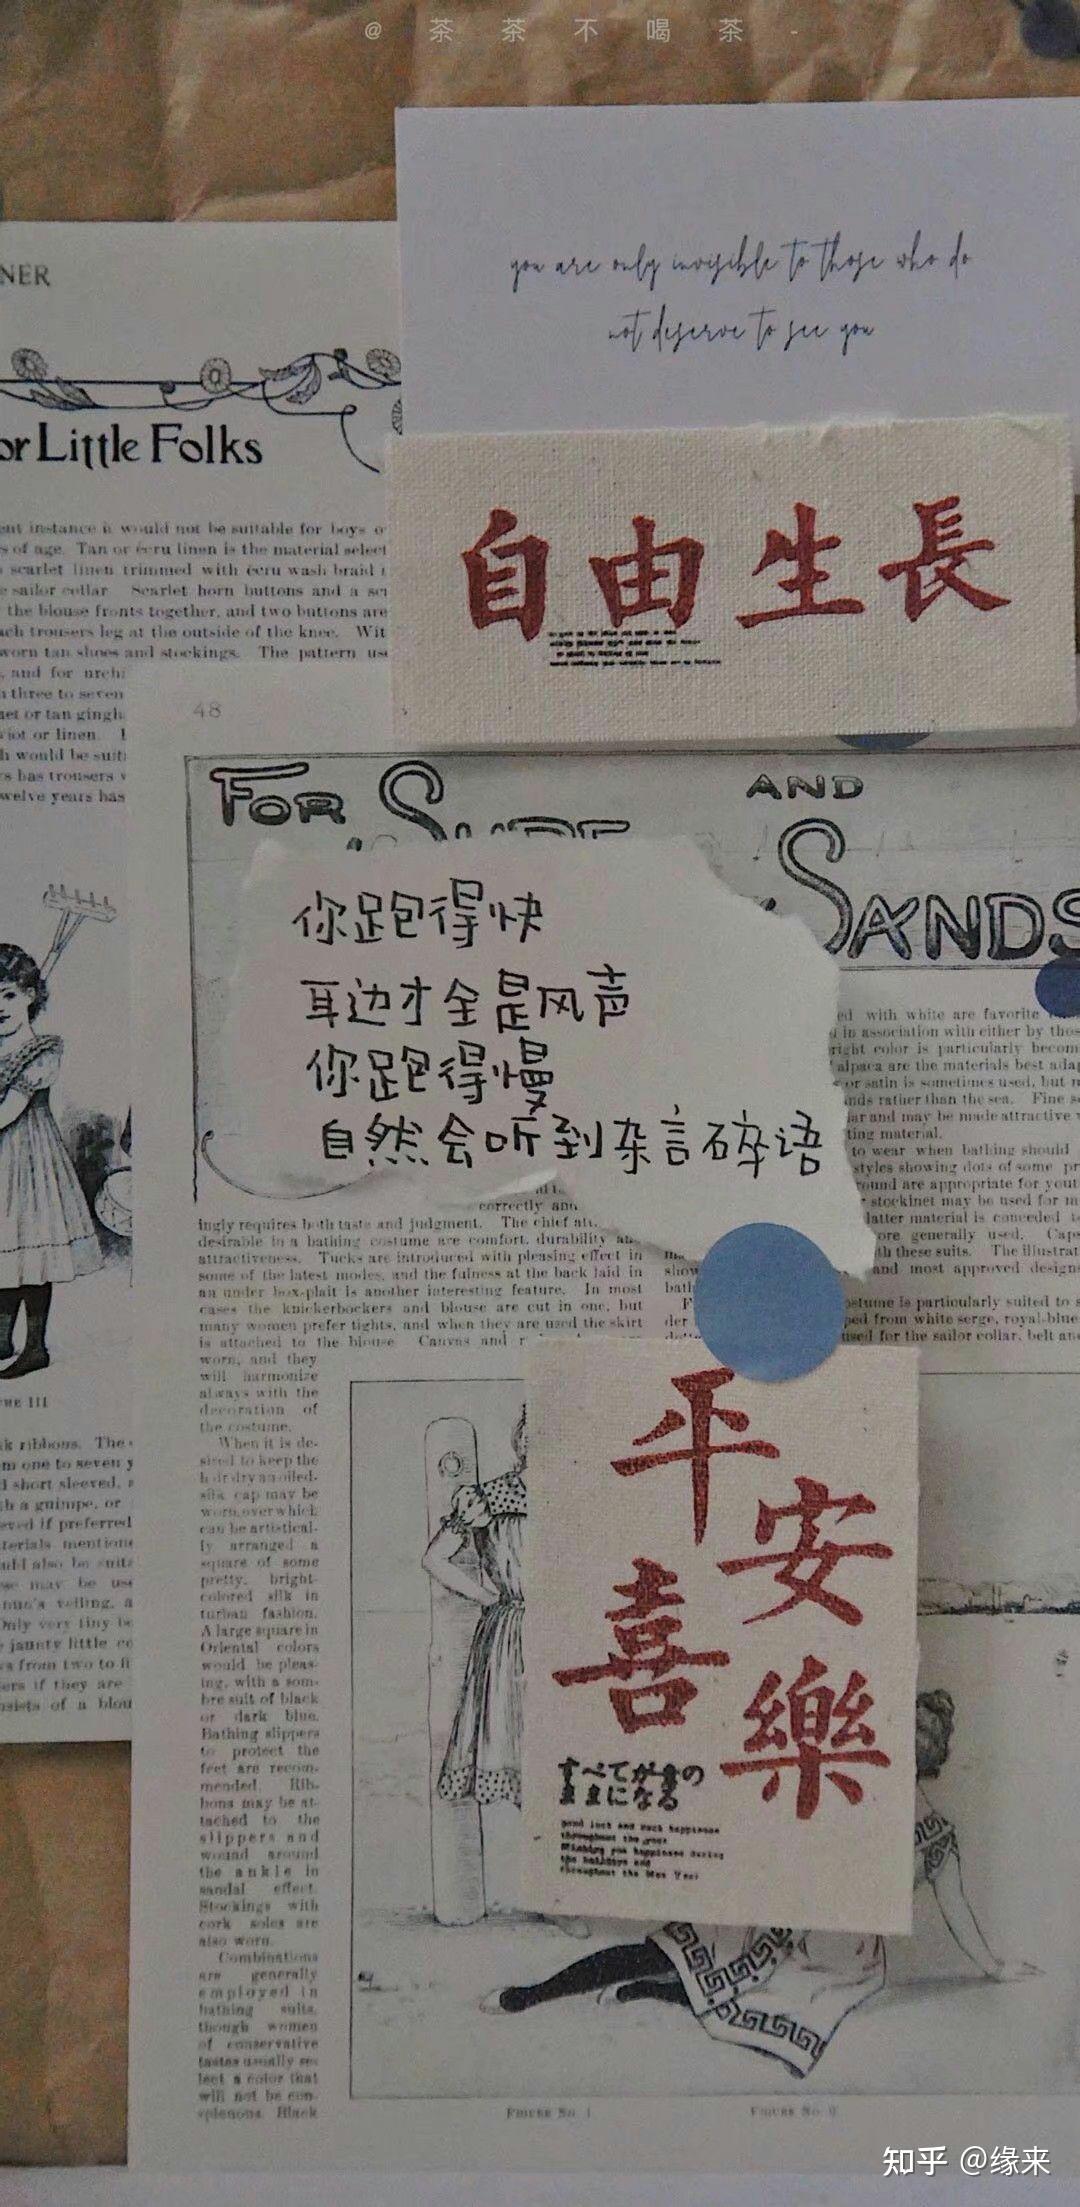 @茶茶不喝茶-
you are only invisible to those who do
not deserve to see you
NER
or Little Folks
ent instance it would not be suitable for boys o
s of age. Tan or écru linen is the material select
scarlet linen trimmed with écru wash braid
e sailor collar. Scarlet horn buttons and a
the blouse fronts together, and two buttons are
ach trousers leg at the outside of the knee. Wit
worn tan shoes and stockings. The pattern
and for
three to seven
et or tan
or linen.
would be
has trousers
twelve years has
自由生長
48
FOR
AND
SANDS
你跑得快
耳边才全是风声
你跑得慢
自然会听到杂言碎语
ed with white are favorite
in association with either by
right color is particularly
alpaca are the materials best
or satin is sometimes used, but
nds rather than the sea. Fine
ar and may be made attractive
ting material.
to wear when bathing should
styles showing dots of some
round are appropriate for
stockinet may be used for
latter material is conceded
ore generally used.
th these suits. The
and most approved designs
ostume is particularly suited to
ped from white serge, royal-blue
used for the sailor collar, belt and
correctly and
ingly requires both taste and judgment. The chief
desirable in a bathing costume are comfort, durability
attractiveness. Tucks are introduced with pleasing effect in
some of the latest modes, and the fulness at the back laid in
an under box-plait is another interesting feature. In most
cases the knickerbockers and blouse are cut in one, but
many women prefer tights, and when they are used the skirt
is attached to the blouse. Canvas and
worn, and they
will harmonize
always with the
decoration of
the costume.
When it is de-
sired to keep the
hair dry an oiled-
silk cap may be
worn, over which
can be artistical-
ly arranged a
square of some
pretty, bright-
colored silk in
turban fashion.
A large square in
Oriental colors
would be pleas-
ing, with a som-
bre suit of black
or dark blue.
Bathing slippers
to protect the
feet are recom-
mended. Rib-
bons may be at-
tached to the
slippers and
wound around
the ankle in
sandal effect.
Stockings with
cork soles are
also worn.
Combinations
are generally
employed in
bathing suits,
though women
of conservative
tastes usually se-
lect a color that
will not be con-
spicuous. Black
III
k ribbons. The
m one to seven
d short sleeved,
h a guimpe, or
eved if preferred
terials
be
veiling,
Only very tiny
jaunty little
from two to
if they are
of a
平安
喜樂
すべてが
ままになる
good luck and much happiness
throughout the year
Wishing you happiness during
the holidays and
throughout the New Year
FIGURE No. 1
知乎 @缘来